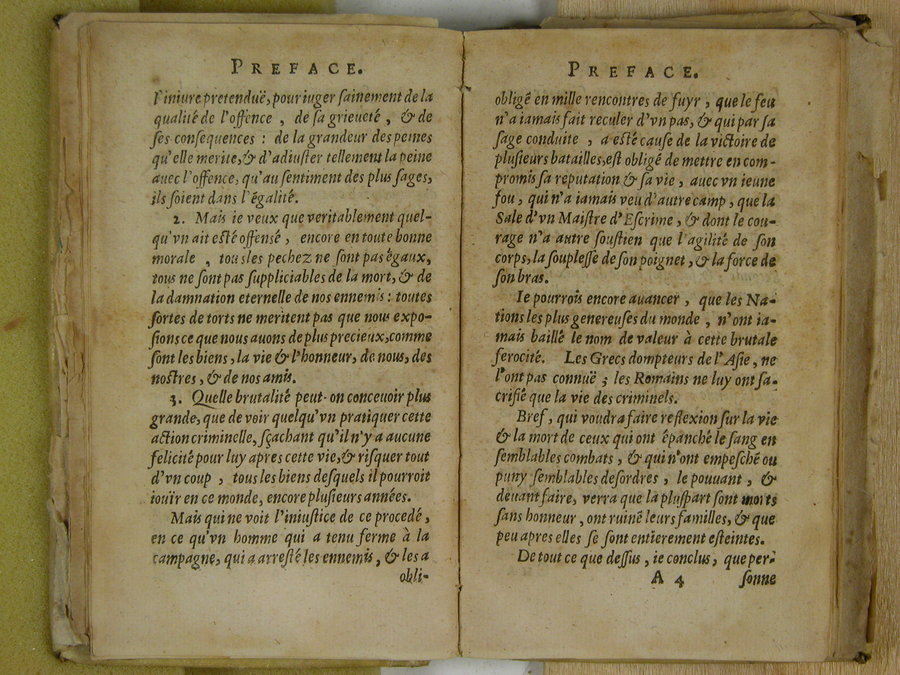 PREFACE.
l'iniure pretenduë, pour iuger sainement de la
qualité de l'offence, de sa grieueté, & de
ses consequences : de la grandeur des peines
qu'elle merite, & d'adiuster tellement la peine
auec l'offence, qu'au sentiment des plus sages,
ils soient dans l'égalité.
2. Mais ie veux que veritablement quel-
qu'vn ait esté offensé, encore en toute bonne
morale, tous les pechez ne sont pas égaux,
tous ne sont pas suppliciables de la mort, & de
la damnation eternelle de nos ennemis : toutes
sortes de torts ne meritent pas que nous expo-
sions ce que nous auons de plus precieux, comme
sont les biens, la vie & l'honneur, de nous, des
nostres, & de nos amis.
3. Quelle brutalité peut-on conceuoir plus
grande, que de voir quelqu'vn pratiquer cette
action criminelle, sçachant qu'il n'y a aucune
felicité pour luy apres cette vie, & risquer tout
d'vn coup, tous les biens desquels il pourroit
iouïr en ce monde, encore plusieurs années.
Mais qui ne voit l'iniustice de ce procedé,
en ce qu'vn homme qui a tenu ferme à la
campagne, qui a arresté les ennemis, & les a
obli-
PREFACE.
obligé en mille rencontres de fuyr, que le feu
n'a iamais fait reculer d'vn pas, & qui par sa
sage conduite, a esté cause de la victoire de
plusieurs batailles, est obligé de mettre en com-
promis sa reputation & sa vie, auec vn ieune
fou, qui n'a iamais veu d'autre camp, que la
Sale d'vn Maistre d'Escrime, & dont le cou-
rage n'a autre soustien que l'agilité de son
corps, la souplesse de son poignet, & la force de
son bras.
Ie pourrois encore auancer, que les Na-
tions les plus genereuses du monde, n'ont ia-
mais baillé le nom de valeur à cette brutale
ferocité. Les Grecs dompteurs de l'Asie, ne
l'ont pas connuë ; les Romains ne luy ont sa-
crifié que la vie des criminels.
Bref, qui voudra faire reflexion sur la vie
& la mort de ceux qui ont épanché le sang en
semblables combats, & qui n'ont empesché ou
puny semblables desordres, le pouuant, &
deuant faire, verra que la pluspart sont morts
sans honneur, ont ruiné leurs familles, & que
peu apres elles se sont entierement esteintes.
De tout ce que dessus, ie conclus, que per-
A 4 sonne